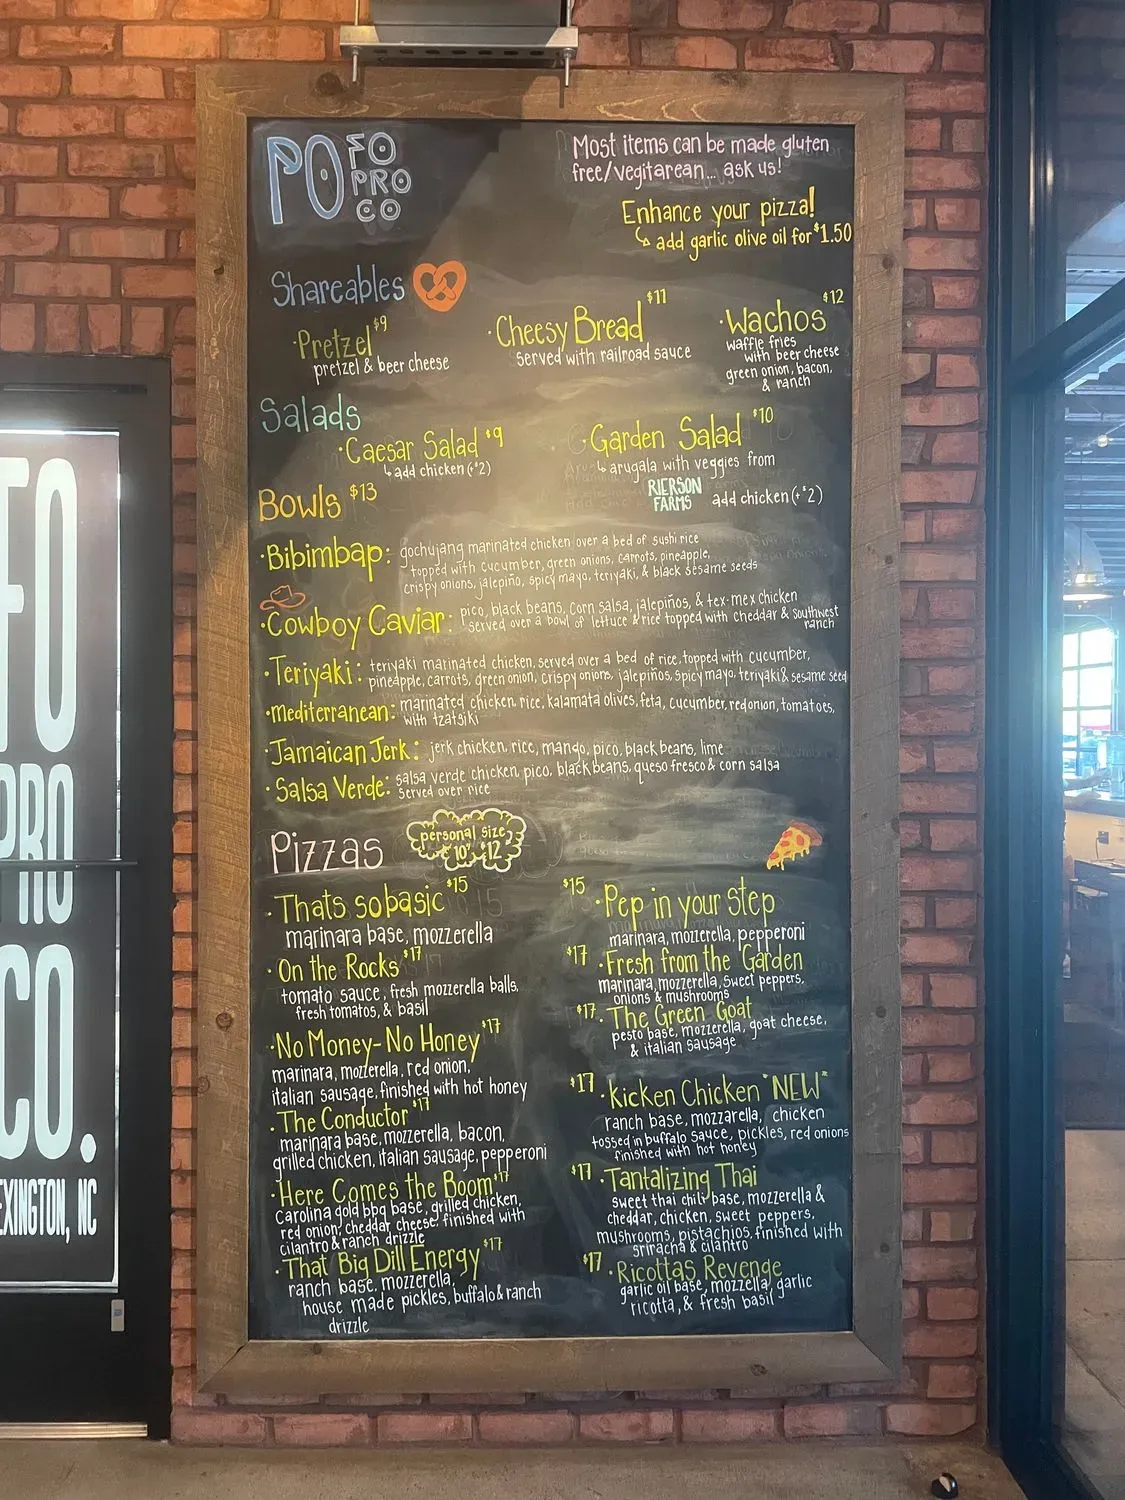 PO FO PRO CO
Most items can be made gluten
free/vegitarean... ask us!
Enhance your pizza!
add garlic olive oil for $1.50
Shareables
·Pretzel $9
pretzel & beer cheese
·Cheesy Bread $11
served with railroad sauce
·Wachos $12
waffle fries
with beer cheese
green onion, bacon,
& ranch
Salads
·Caesar Salad $9
add chicken (+$2)
·Garden Salad $10
arugala with veggies from
RIERSON
FARMS
add chicken (+$2)
Bowls $13
·Bibimbap: gochujang marinated chicken over a bed of sushi rice
topped with cucumber, green onions, carrots, pineapple,
crispy onions, jalepiño, spicy mayo, teriyaki, & black sesame seeds
·Cowboy Caviar: pico, black beans, corn salsa, jalepiños, & tex-mex chicken
served over a bowl of lettuce & rice topped with cheddar & southwest
ranch
·Teriyaki: teriyaki marinated chicken, served over a bed of rice, topped with cucumber,
pineapple, carrots, green onion, crispy onions, jalepiños, spicy mayo, teriyaki & sesame seed
·mediterranean: marinated chicken, rice, kalamata olives, feta, cucumber, red onion, tomatoes,
with tzatsiki
·Jamaican Jerk: jerk chicken, rice, mango, pico, black beans, lime
·Salsa Verde: salsa verde chicken, pico, black beans, queso fresco & corn salsa
served over rice
Pizzas
personal size
10" $12
·Thats so basic $15
marinara base, mozzerella
·On the Rocks $17
tomato sauce, fresh mozzerella balls,
fresh tomatos, & basil
·No Money-No Honey $17
marinara, mozzerella, red onion,
italian sausage, finished with hot honey
·The Conductor $17
marinara base, mozzerella, bacon,
grilled chicken, italian sausage, pepperoni
·Here Comes the Boom $17
Carolina gold bbq base, grilled chicken,
red onion, cheddar cheese, finished with
cilantro & ranch drizzle
·That Big Dill Energy $17
ranch base, mozzerella,
house made pickles, buffalo & ranch
drizzle
$15 ·Pep in your Step
marinara, mozzerella, pepperoni
$17 ·Fresh from the Garden
marinara, mozzerella, sweet peppers,
onions & mushrooms
$17 ·The Green Goat
pesto base, mozzerella, goat cheese,
& italian sausage
$17 ·Kicken Chicken "NEW"
ranch base, mozzarella, chicken
tossed in buffalo sauce, pickles, red onions
finished with hot honey
$17 ·Tantalizing Thai
sweet thai chili base, mozzerella &
cheddar, chicken, sweet peppers,
mushrooms, pistachios, finished with
sriracha & cilantro
$17 ·Ricottas Revenge
garlic oil base, mozzella, garlic
ricotta, & fresh basil
FO
PRO
CO.
EXINGTON, NC